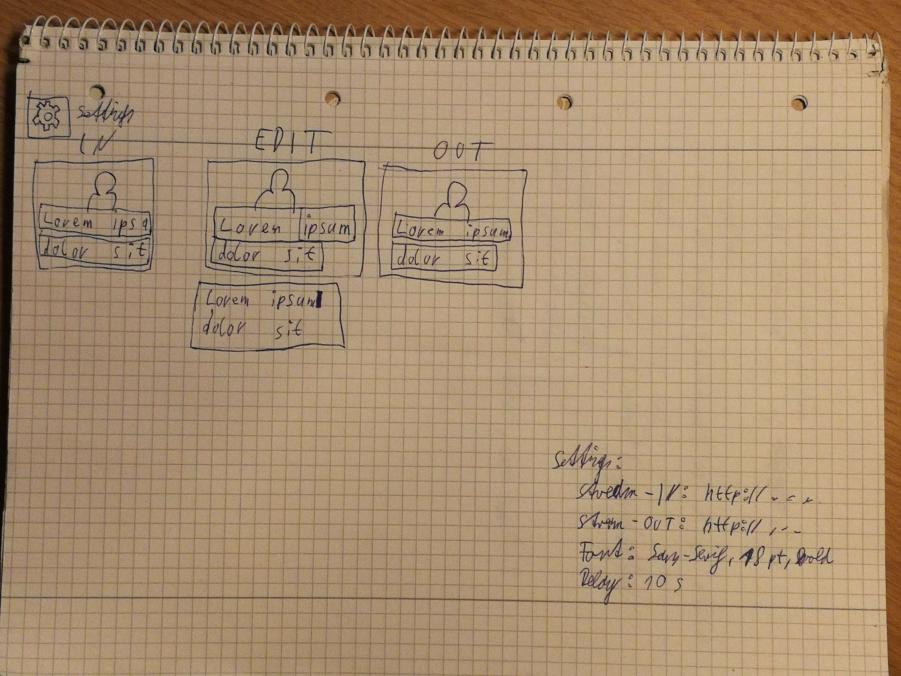 Settings
IN
EDIT
OUT
Lorem ips
dolor sit
Lorem ipsum
dolor sit
Lorem ipsum
dolor sit
Lorem ipsum
dolor sit
Settings:
stream-IN: http://...
stream-OUT: http://...
Font: Sans-Serif, 18 pt, bold
Delay: 10 s